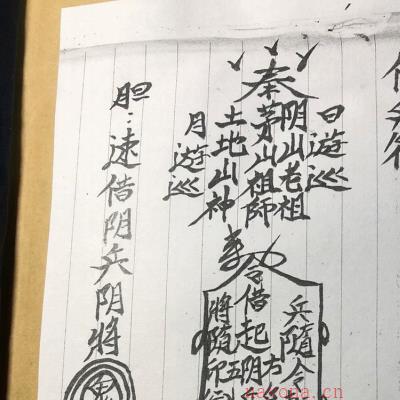 奉
日遊巡
阴山老祖
茅山祖師
土地山神
月遊巡
兵隨令
方
令借起阴
五
將隨印
胆：速借阴兵阴將
鬼
nayona.cn